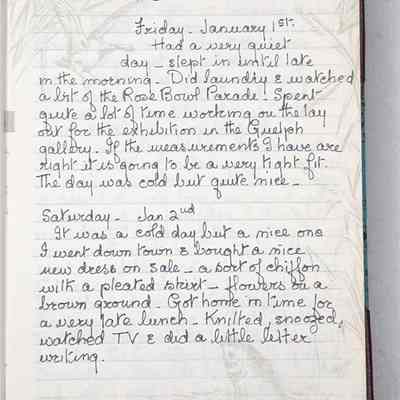 Friday - January 1st.
Had a very quiet
day - slept in until late
in the morning - Did laundry & watched
a bit of the Rose Bowl Parade - Spent
quite a lot of time working on the lay
out for the exhibition in the Guelph
gallery. If the measurements I have are
right it is going to be a very tight fit.
The day was cold but quite nice -
Saturday - Jan 2nd
It was a cold day but a nice one
I went down town & bought a nice
new dress on sale - a sort of chiffon
with a pleated skirt - flowers on a
brown ground - Got home in time for
a very late lunch - Knitted, snoozed,
watched TV & did a little letter
writing.